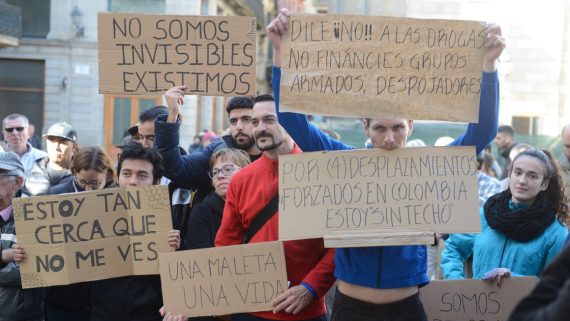 NO SOMOS
INVISIBLES
EXISTIMOS
DILE ¡¡NO!! A LAS DROGAS
NO FINÁNCIES GRUPOS
ARMADOS, DESPOJADORES
POR (4) DESPLAZAMIENTOS
FORZADOS EN COLOMBIA
ESTOY "SIN TECHO"
ESTOY TAN
CERCA QUE
NO ME VES
UNA MALETA
UNA VIDA
SOMOS